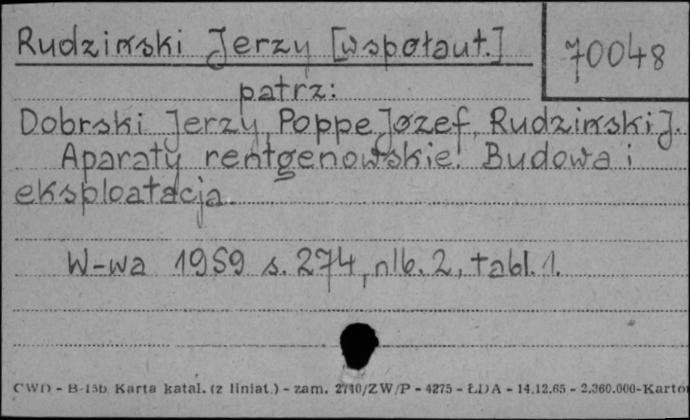 Rudziński Jerzy [współaut.]
70048
patrz:
Dobrski Jerzy, Poppe Józef, Rudziński J.
Aparaty rentgenowskie. Budowa i
eksploatacja.
W-wa 1959 s. 274, nlb. 2, tabl. 1.
CWD - B-15b Karta katal. (z liniat.) - zam. 2740/ZW/P - 4275 - ŁDA - 14.12.65 - 2.360.000-Karto